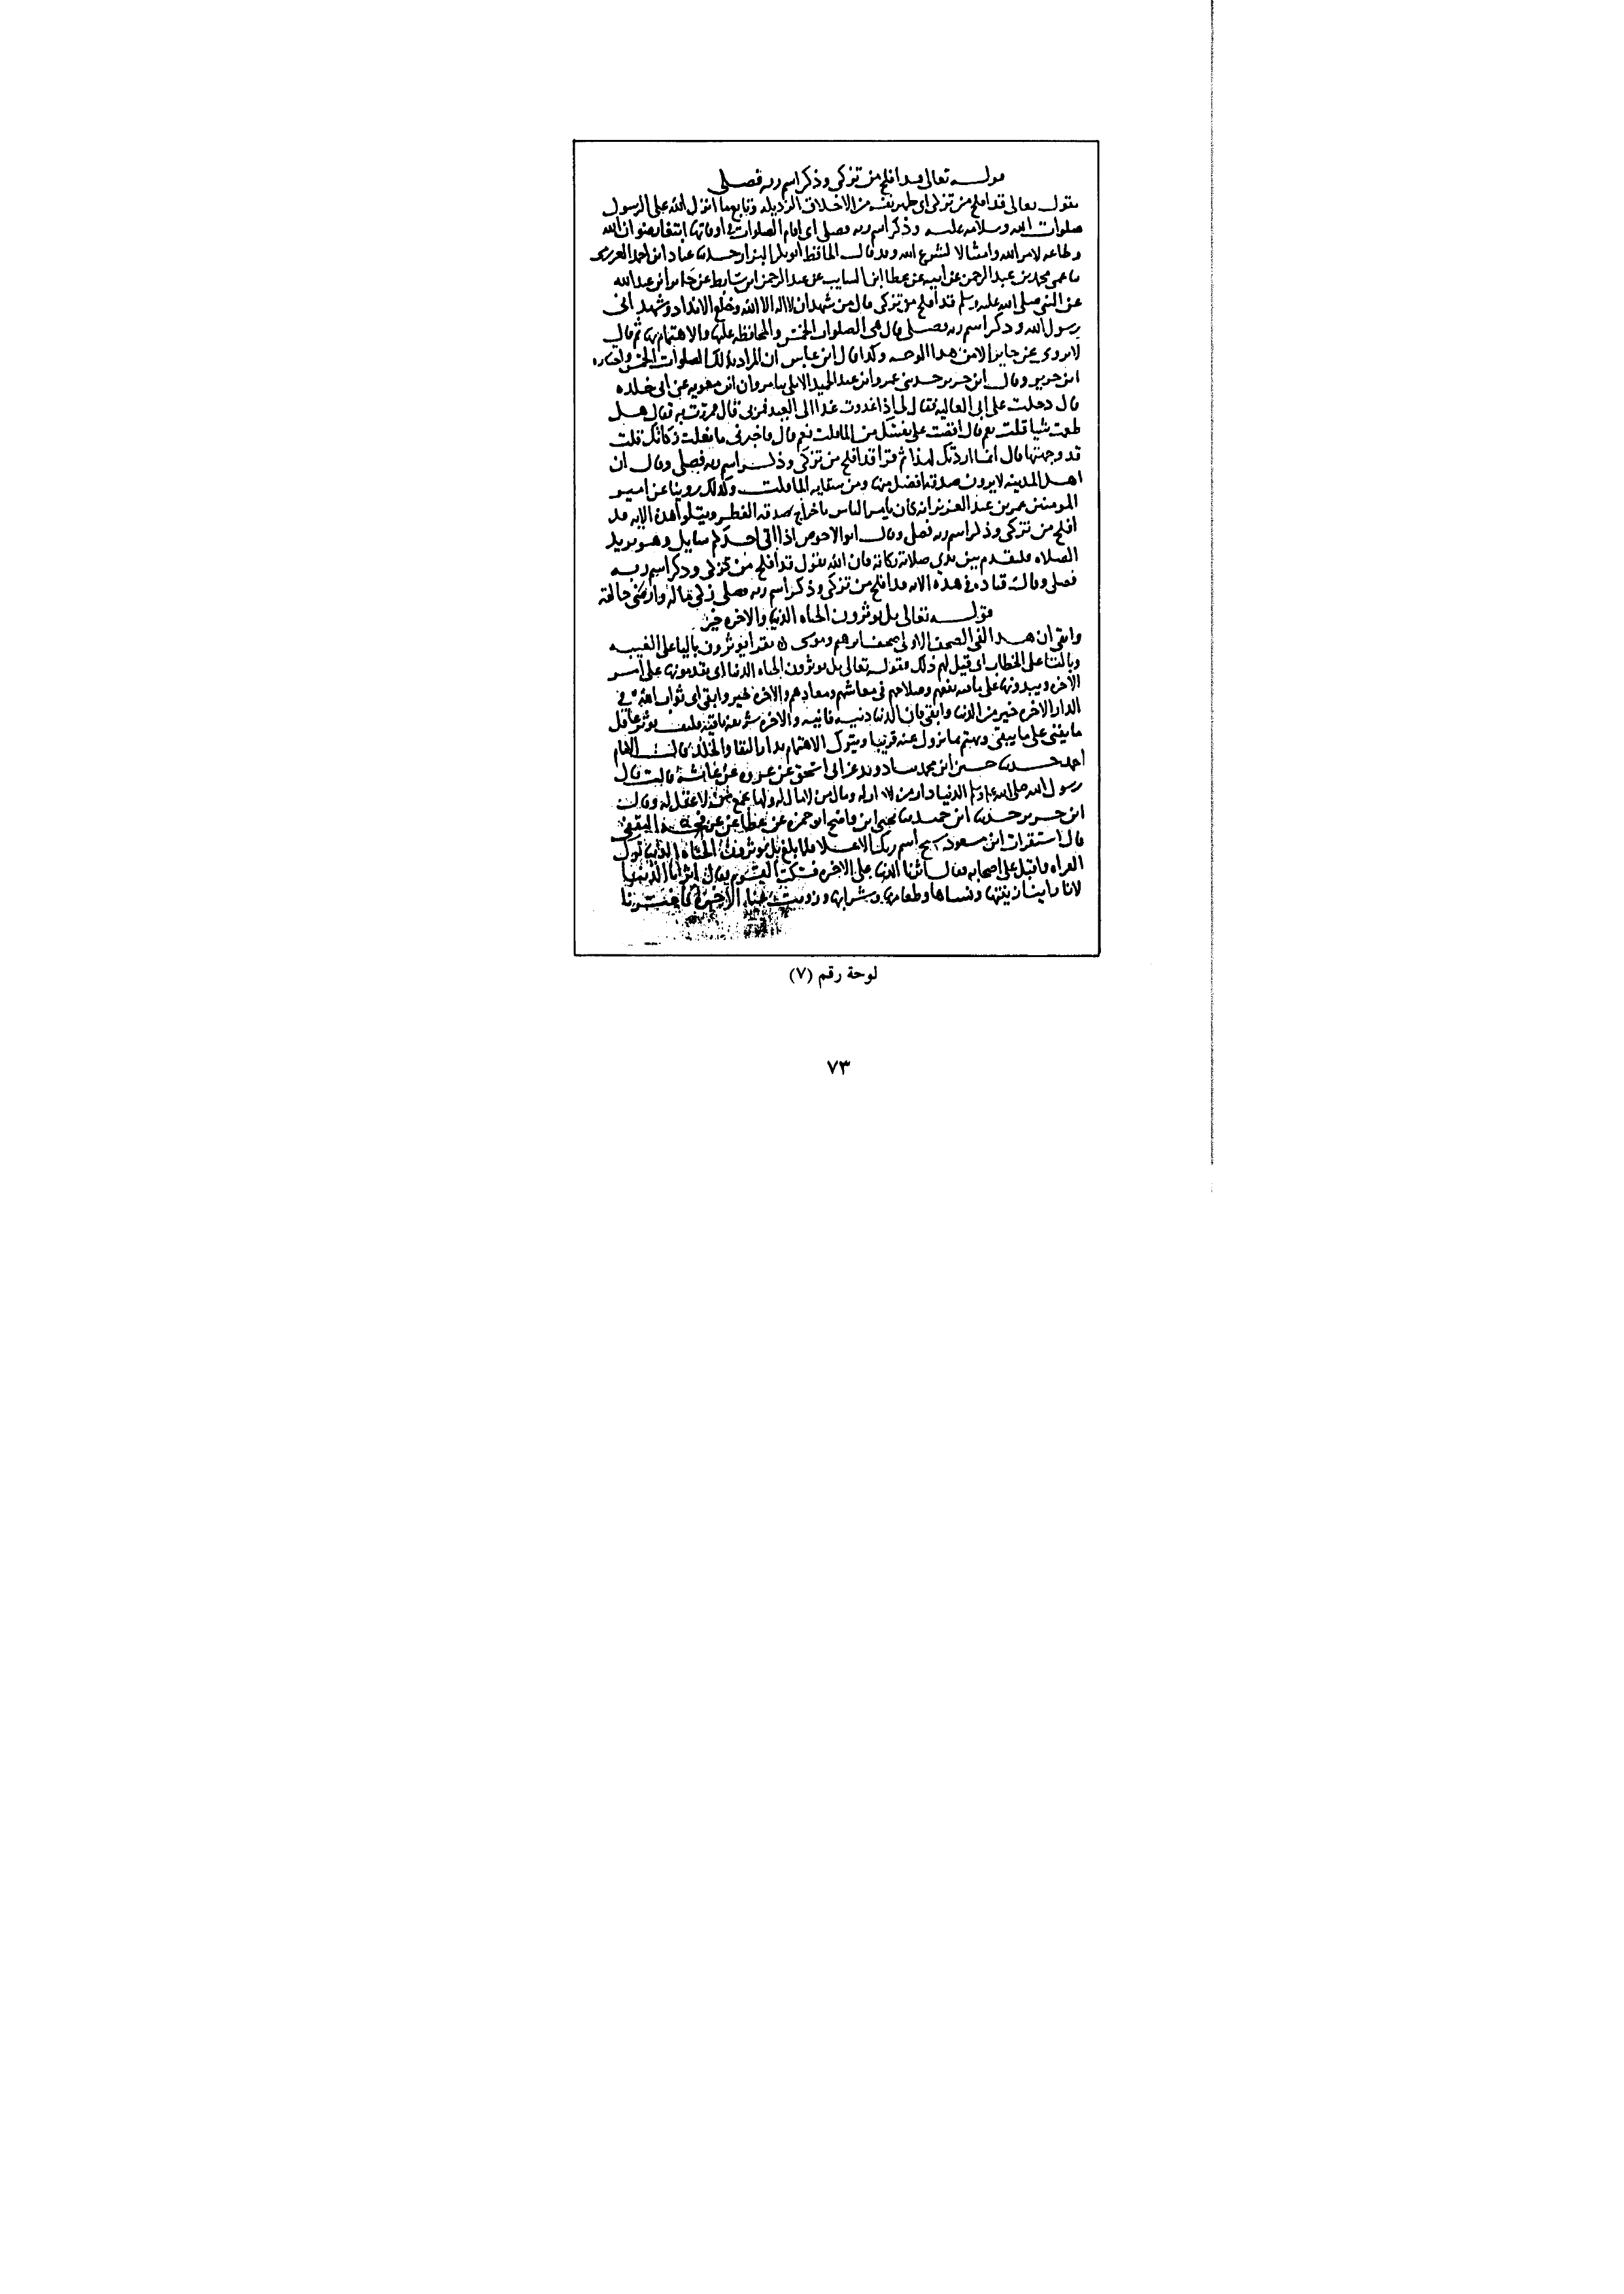 قولـــه تعالى قد افلح من تزكى وذكر اسم ربه فصلى
يقول تعالى قد افلح من تزكى اي طهر نفسه من الاخلاق الرذيله وتابع ما انزل الله على الرسول
صلوات الله وسلامه عليه وذكر اسم ربه فصلى اي اقام الصلوات في اوقاتها ابتغا رضوان الله
وطاعه لامر الله وامتثالا لشرع الله وقد قال الحافظ ابو بكر البزار حدثنا عباد ابن احمد العرزمى
ثنا عمى محمد بن عبد الرحمن عن ابيه عن عطا ابن السايب عن عبد الرحمن ابن سابط عن جابر ابن عبد الله
عن النبي صلى الله عليه وسلم قد أفلح من تزكى قال من شهد ان لا اله الا الله وخلع الانداد وشهد اني
رسول الله وذكر اسم ربه فصلى قال هي الصلوات الخمس والمحافظه عليها والاهتمام بها ثم قال
لا يروى عن جابر الا من هذا الوجه وكذا قال ابن عباس ان المراد بذلك الصلوات الخمس واختاره
ابن جرير وقال ابن جرير حدثني عمرو ابن عبد الحميد الابلي ثنا مروان ابن معويه عن ابي خلده
قال دخلت على ابي العاليه فقال لي اذا غدوت غدا الى العيد فمر بي قال فمررت به فقال هـل
طعمت شيا قلت نعم قال افضت على نفسك من الما قلت نعم قال فاخبرني ما فعلت زكاتك قلت
قد وجهتها قال انما اردتك لهذا ثم قرا قد افلح من تزكى وذكر اسم ربه فصلى وقال ان
اهـل المدينه لا يرون صدقه افضل منها ومن سقايه الما قلت وكذلك روينا عن امير
المومنين عمر بن عبد العزيز انه كان يامر الناس باخراج صدقه الفطر ويتلوا هذه الايه قد
افلح من تزكى وذكر اسم ربه فصلى وقال ابو الاحوص اذا اتى احدكم سايل وهو يريد
الصلاه فليقدم بين يدي صلاته زكاته فان الله يقول قد افلح من تزكى وذكر اسم ربه
فصلى وقال قتاده في هذه الايه قد افلح من تزكى وذكر اسم ربه فصلى زكى ماله وارضى خالقه
قولـــه تعالى بل يوثرون الحياه الدنيا والاخره خير
وابقى ان هـذا لفي الصحف الاولى صحف ابرهيم وموسى يقرا يوثرون باليا على الغيبه
وبالتا على الخطاب اي قيل لهم ذلك فقوله تعالى بل يوثرون الحياه الدنيا اي يقدمونها على امر
الاخره ويبدونها على ما فيه نفعهم وصلاحهم في معاشهم ومعادهم والاخره خير وابقى اي ثواب الله في
الدار الاخره خير من الدنيا وابقى فان الدنيا دنيه فانيه والاخره شريفه باقيه فكيف يوثر عاقل
ما يفنى على ما يبقى ويهتم بما يزول عنه قريبا ويترك الاهتمام بدار البقا والخلد قال الامام
احمد حدثنا حسين ابن محمد ثنا دويد عن ابي اسحق عن عروه عن عائشه قالت قال
رسول الله صلى الله عليه وسلم الدنيا دار من لا دار له ومال من لا مال له ولها يجمع من لا عقل له وقال
ابن جرير حدثنا ابن حميد ثنا يحيى ابن واضح ابو حمزه عن عطا عن عرفجه الثقفي
قال استقرات ابن مسعود سبح اسم ربك الاعـلا فلما بلغ بل يوثرون الحياه الدنيا ترك
القراه واقبل على اصحابه فقال آثرنا الدنيا على الاخره فسكت القوم فقال آثرنا الدنيا
لانا راينا زينتها ونساها وطعامها وشرابها وزويت عنا الاخره فاخترنا
لوحة رقم (٧)
٧٣